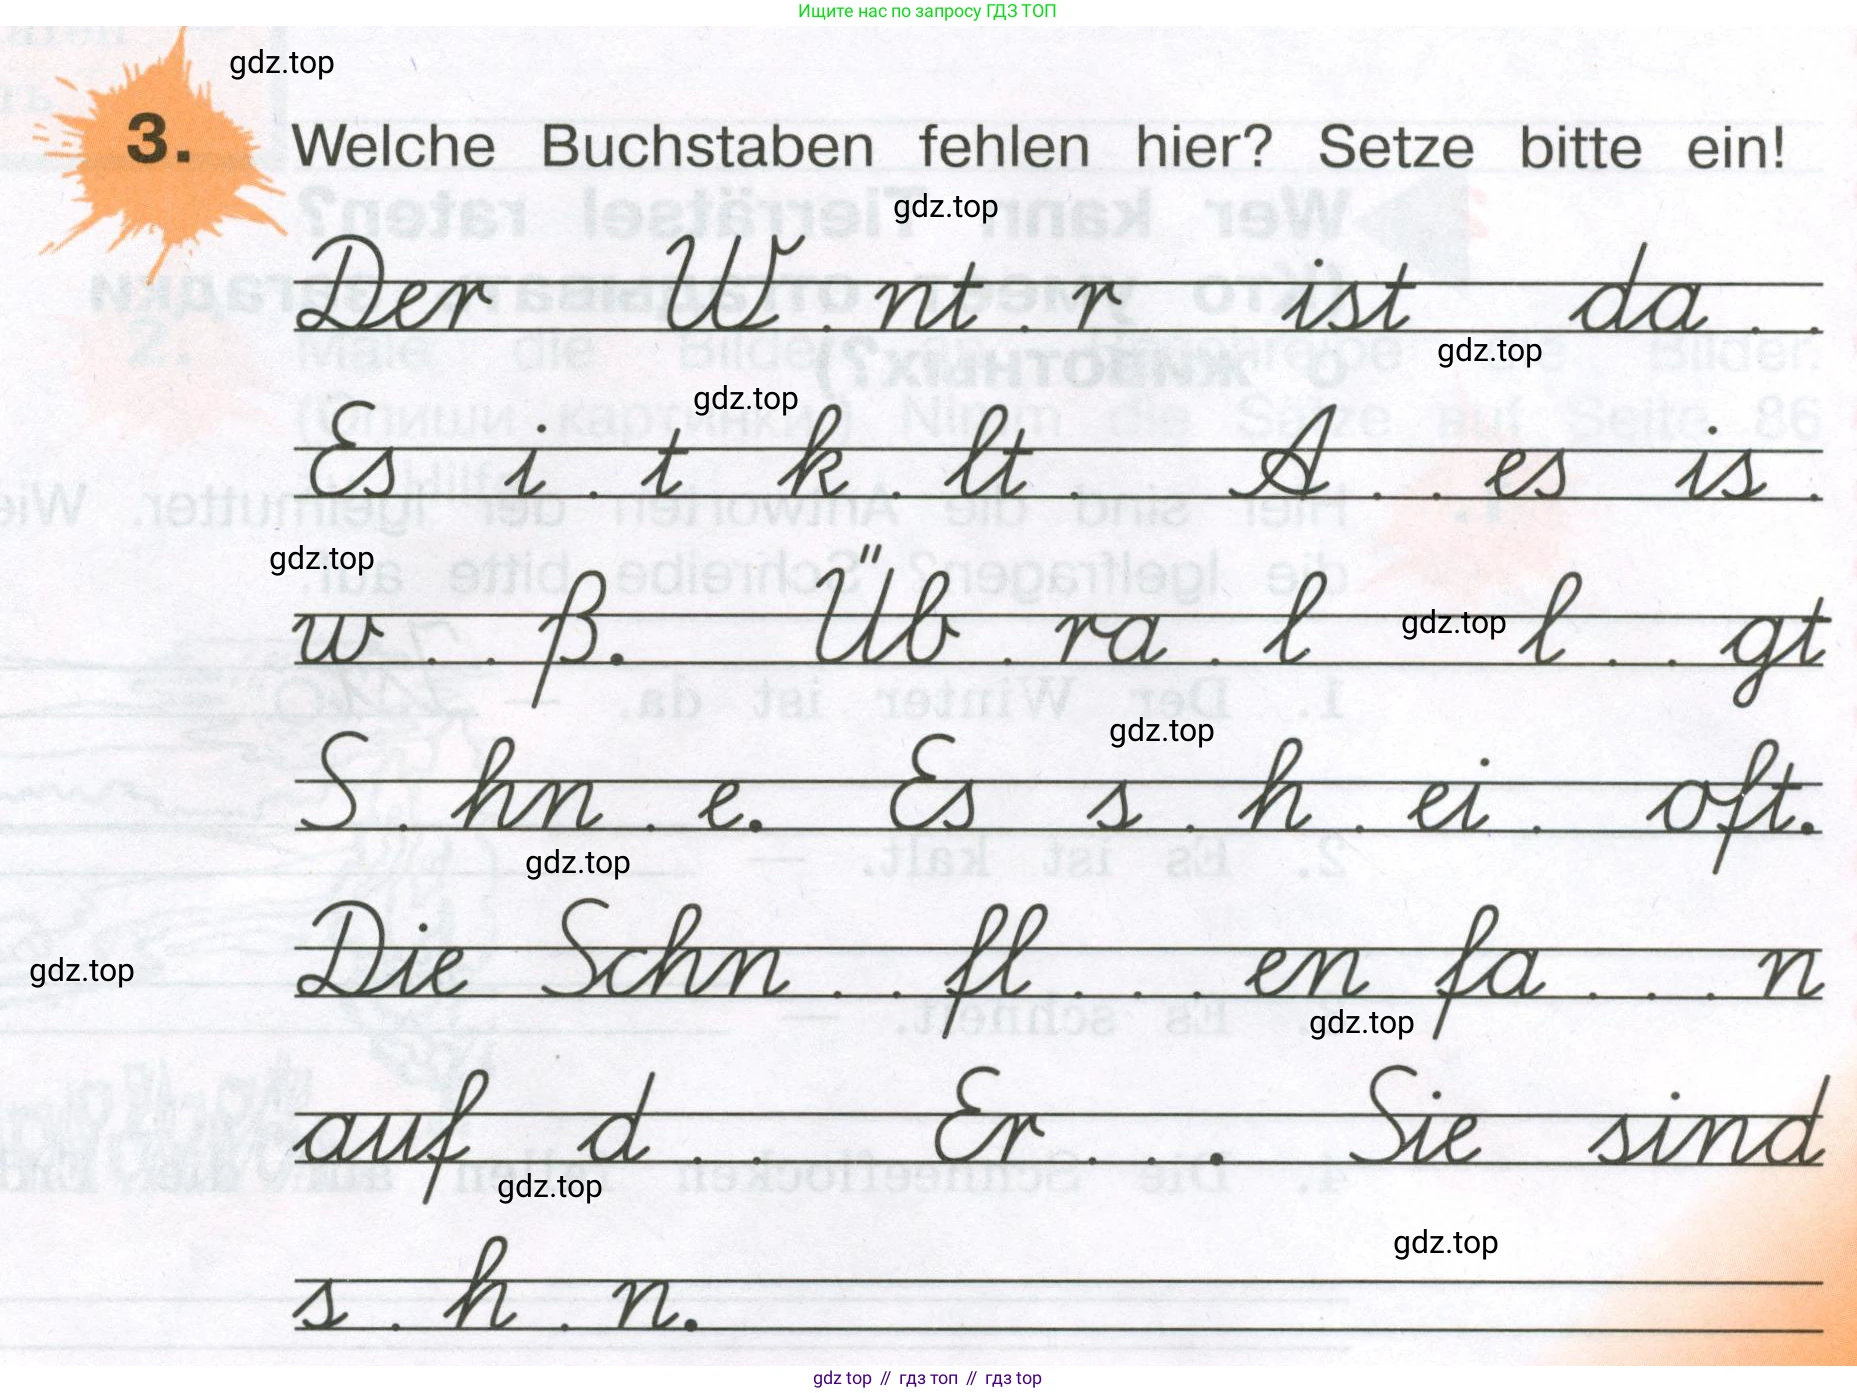 Ищите нас по запросу ГДЗ ТОП
gdz.top
3. Welche Buchstaben fehlen hier? Setze bitte ein!
gdz.top
Der W . nt . r ist da . .
gdz.top
gdz.top
Es i . t k . lt . A . . es is .
gdz.top
w . . ß. Üb . ra . l l . . gt
gdz.top
gdz.top
S . hn . e. Es s . h . ei . oft.
gdz.top
Die Schn . . fl . . . en fa . . . n
gdz.top
gdz.top
auf d . . Er . . . Sie sind
gdz.top
gdz.top
s . h . n.
gdz top // гдз топ // gdz top